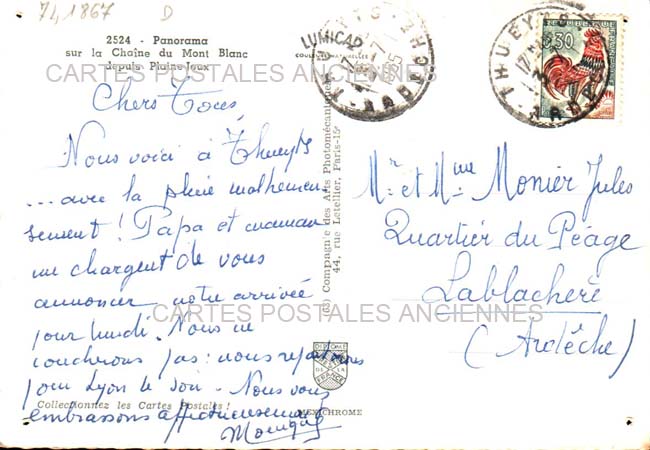 74 1867 D
2524 - Panorama
sur la Chaîne du Mont Blanc
depuis Plaine-Joux
CARTES POSTALES ANCIENNES
LUMICAP
Chers Tous,
Nous voici à Thueyts
... avec la pluie malheureu
sement ! Papa et maman
me chargent de vous
annoncer notre arrivée
pour lundi. Nous ne
coucherons pas : nous repartirons
pour Lyon le soir - Nous vous
embrassons affectueusement
Collectionnez les Cartes Postales !
MEXICHROME
(c) Compagnie des Arts Photomécaniques
44, rue Letellier, Paris-15e
THUEYTS
ARDECHE
0,30
THUEYTS
ARDECHE
Mr et Mme Monier Jules
Quartier du Péage
Lablachère
(Ardèche)
CARTES POSTALES ANCIENNES
DE LA
FRANCE